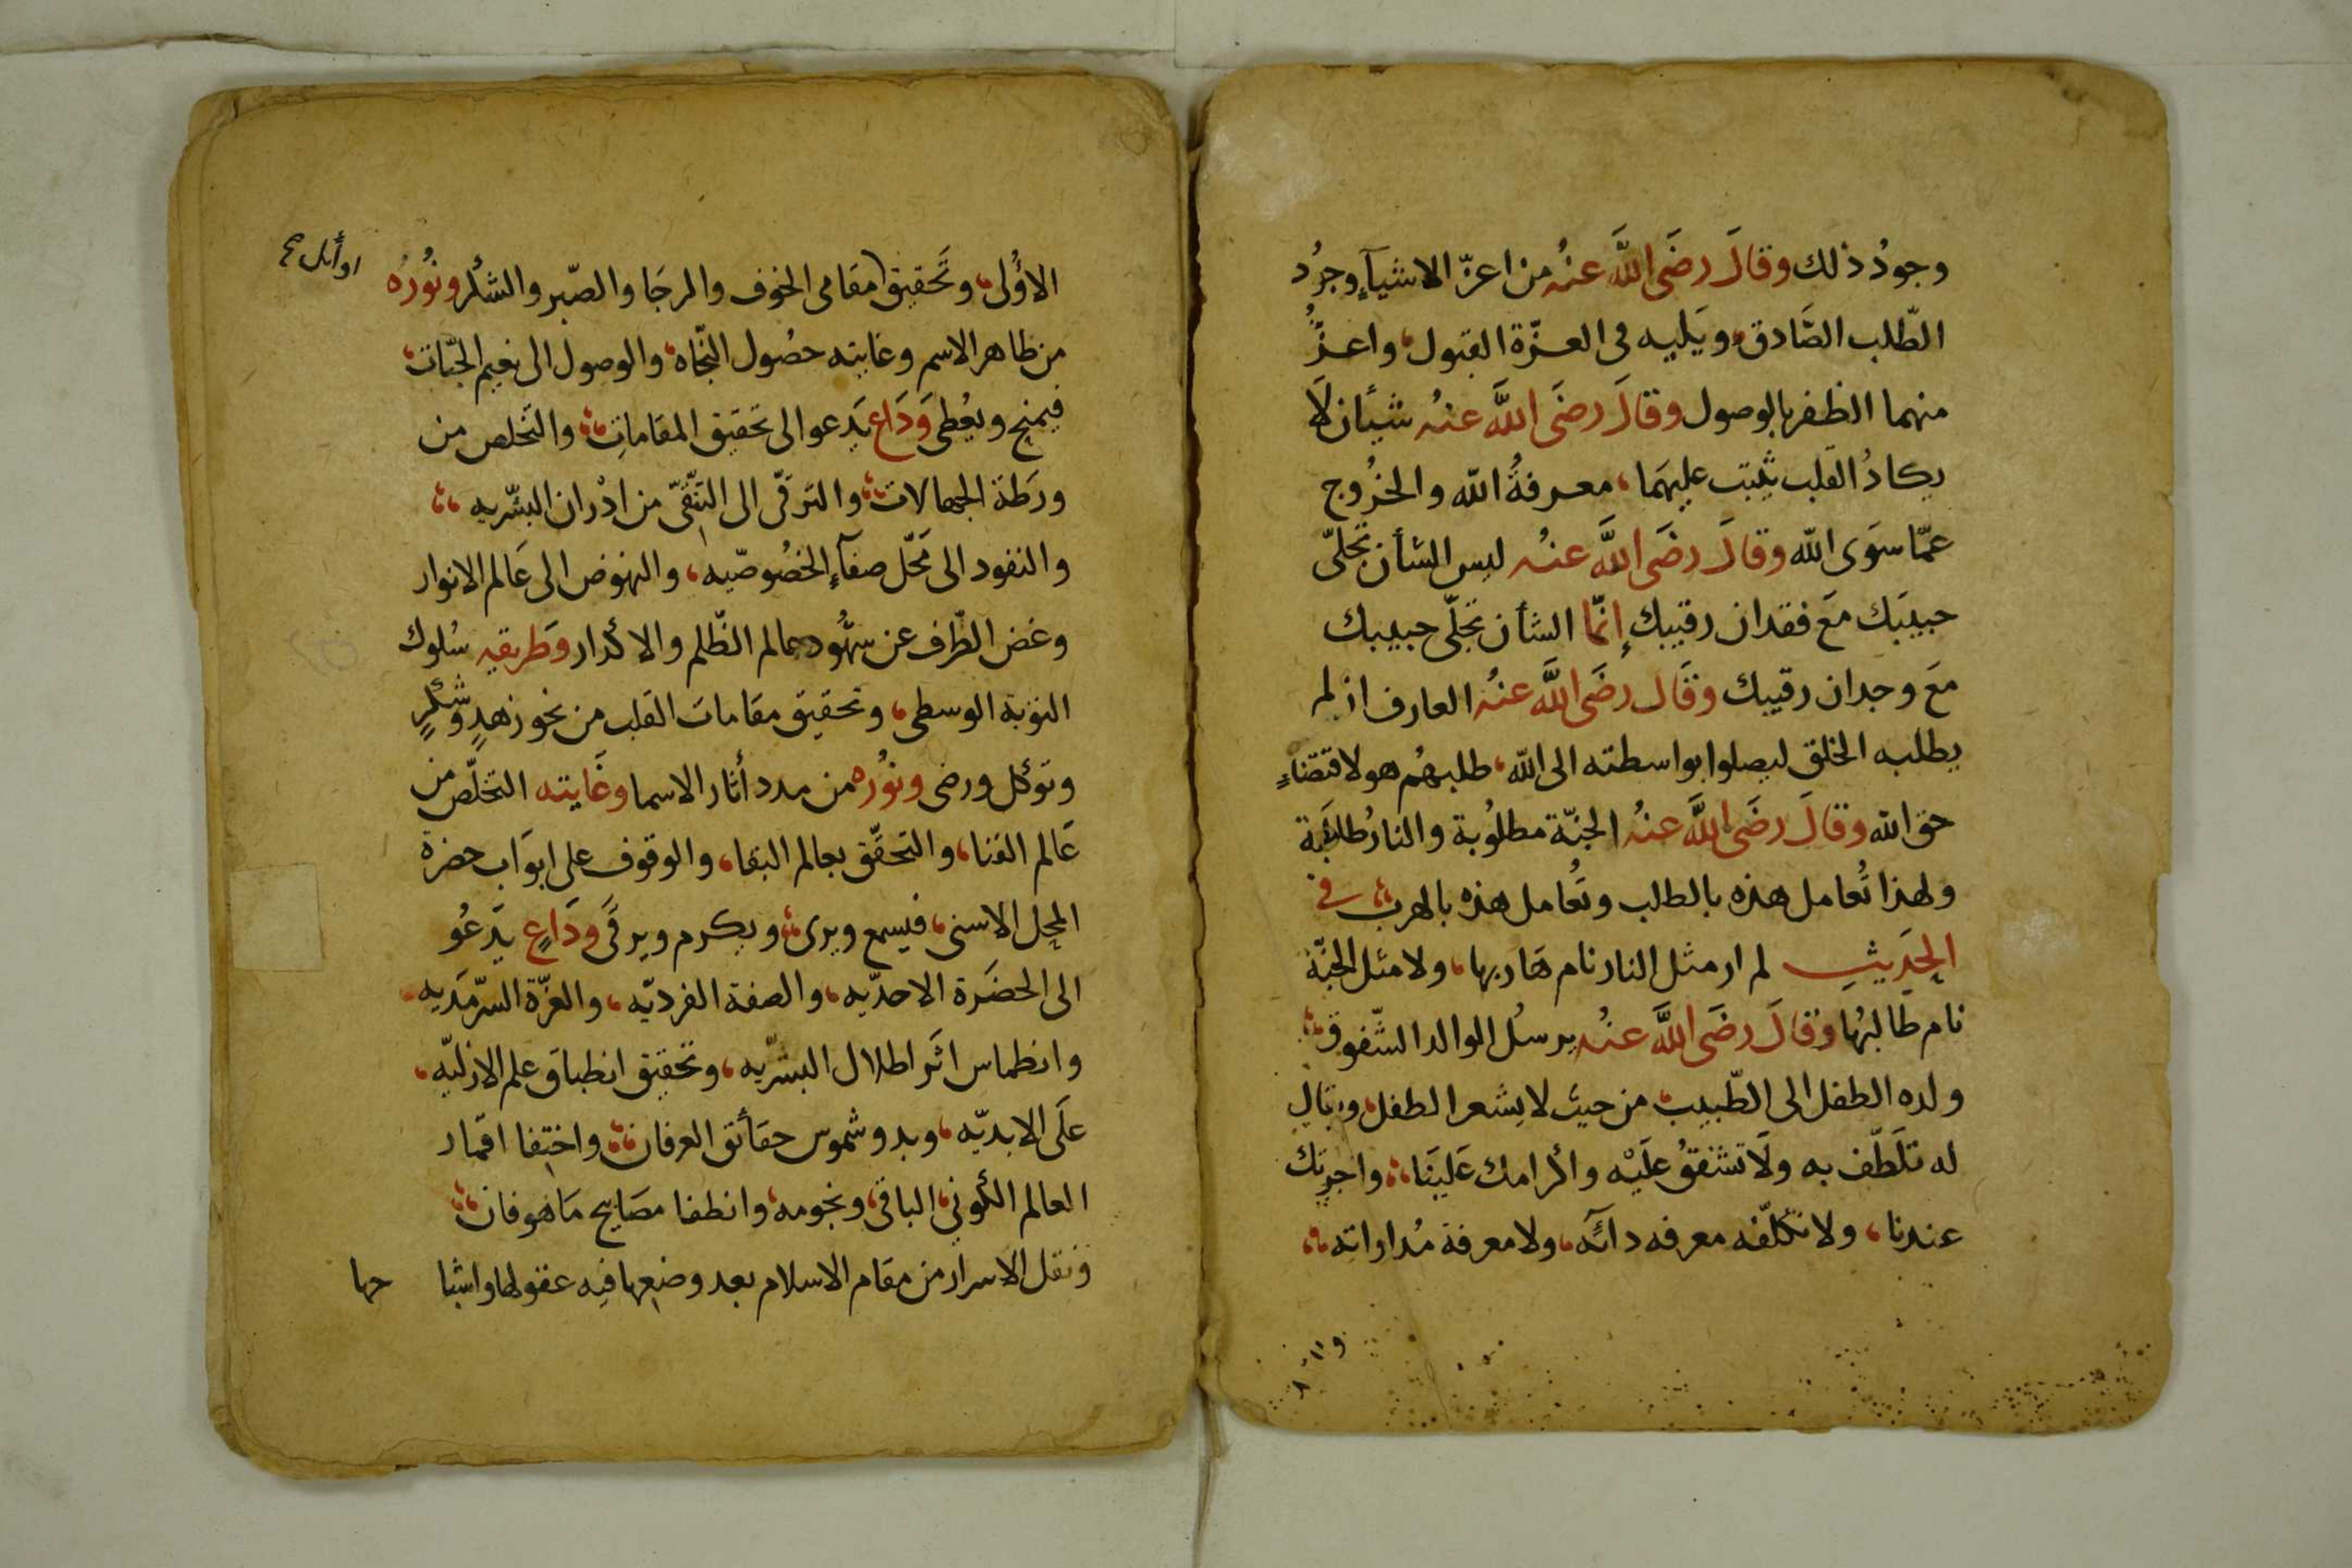 وجودُ ذلك وقالَ رضَى اللَّه عنهُ من اعزّ الاشيآءِ وجودُ
الطّلب الصَّادق، ويَليه فى العزّة القبول، واعزُّ
منهما الظفر بالوصول وقالَ رضَى اللَّه عنهُ شيأن لَا
يكادُ القلب يثبت عليهمَا، معرفةُ الله والخرُوج
عمّا سوَى الله وقالَ رضَى اللَّه عنهُ ليس الشأن تجلىّ
حبيبَك مَع فقدان رقيبك إنّما الشأن تجلّى حبيبك
مَع وجدان رقيبك وقَال رضَى اللَّه عنهُ العارف اذ لم
يطلبه الخلق ليصلوا بواسطته الى الله، طلبهُم هو لاقتضاءِ
حق الله وقالَ رضَى اللَّه عنهُ الجنّة مطلُوبة والنارُ طالَبة
ولهذا تُعامل هذه بالطلب وتُعامل هذه بالهرب، فى
الحَدِيثِ لم ار مثل النار نام هَاربها، ولا مثل الجنّة
نام طَالبُها وقالَ رضَى اللَّه عنهُ يرسُل الوالد الشّفوق،
ولده الطفل الى الطّبيب، من حيث لا يشعر الطفل، ويقال
له تلَطّف به ولَا تشفقُ علَيْه واكرامك عَلينَا، واجرتك
عندنا، ولا تكلّفه معرفه دآئه، ولا معرفة مُداواتِه،
الاُولى، وتَحقيق مقامى الخوف والرجَا والصّبر والشكر ونُورُه
من ظاهر الاسم وغايته حصُول النجّاه، والوصول الى نعيم الجنّات،
فيمنح ويعُطى وَدَاعٍ يَدعو الى تحَقيق المقاماتِ، والتَخلص من
ورَطة الجهالات، والترقّى الى التنقّى من ادْران البشّريه،
والنفود الى مَحَلّ صفآءِ الخصُوصّيه، والنهوض الى عَالم الانوار
وغض الطّرف عن شهُود عالم الظّلم والاكدار وَطريقيه سُلوك
التوبة الوسطى، وتحقيق مقامات القلب من نحو زهدٍ وشكرٍ
وتوكل ورضى ونوُره من مدد أثار الاسما وغَايته التخلّص من
عَالم الفنا، والتَحقّق بعالم البقا، والوقوف على ابوَاب حضرة
المحِل الاسنى، فيسمع ويرى، ويكرم ويرقَى ودَاعٍ يَدعُو
الى الحضَرة الاحدّيه، والصفة الفرديّه، والعزّة السّرمَديه
وانطماس اثَر اطلال البشّريه، وتحقيق انطباق علم الازليّه،
علَى الابديّه، وبدو شموس حقأئق العرفان، واختفا اقمار
العالم الكُونِى، الباقى، ونجومه، وانطفا مصَابيح مَا هو فان،
ونقل الاسرار من مقام الاسلام بعد وضعها فيه عقولها واشبا
حها